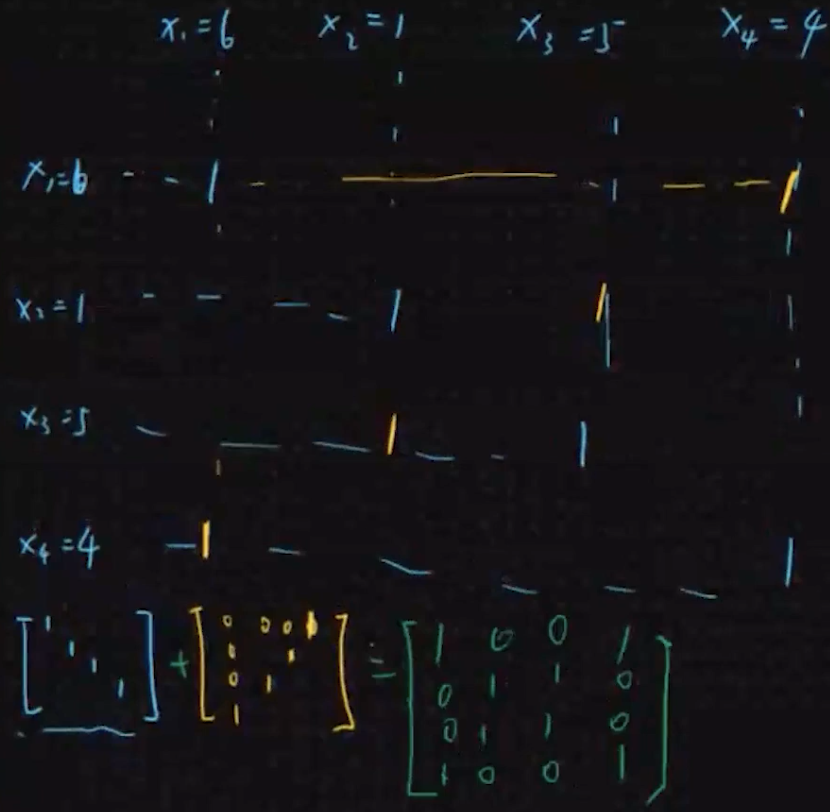 x₁=6 x₂=1 x₃=5 x₄=4
x₁=6 1 1
x₂=1 1 1
x₃=5 1 1
x₄=4 1 1
[1 [0 0 0 1 [1 0 0 1
1 0 1 0 1 1 0
1 0 1 0 1 1 0
1] + 1] = 1 0 0 1]